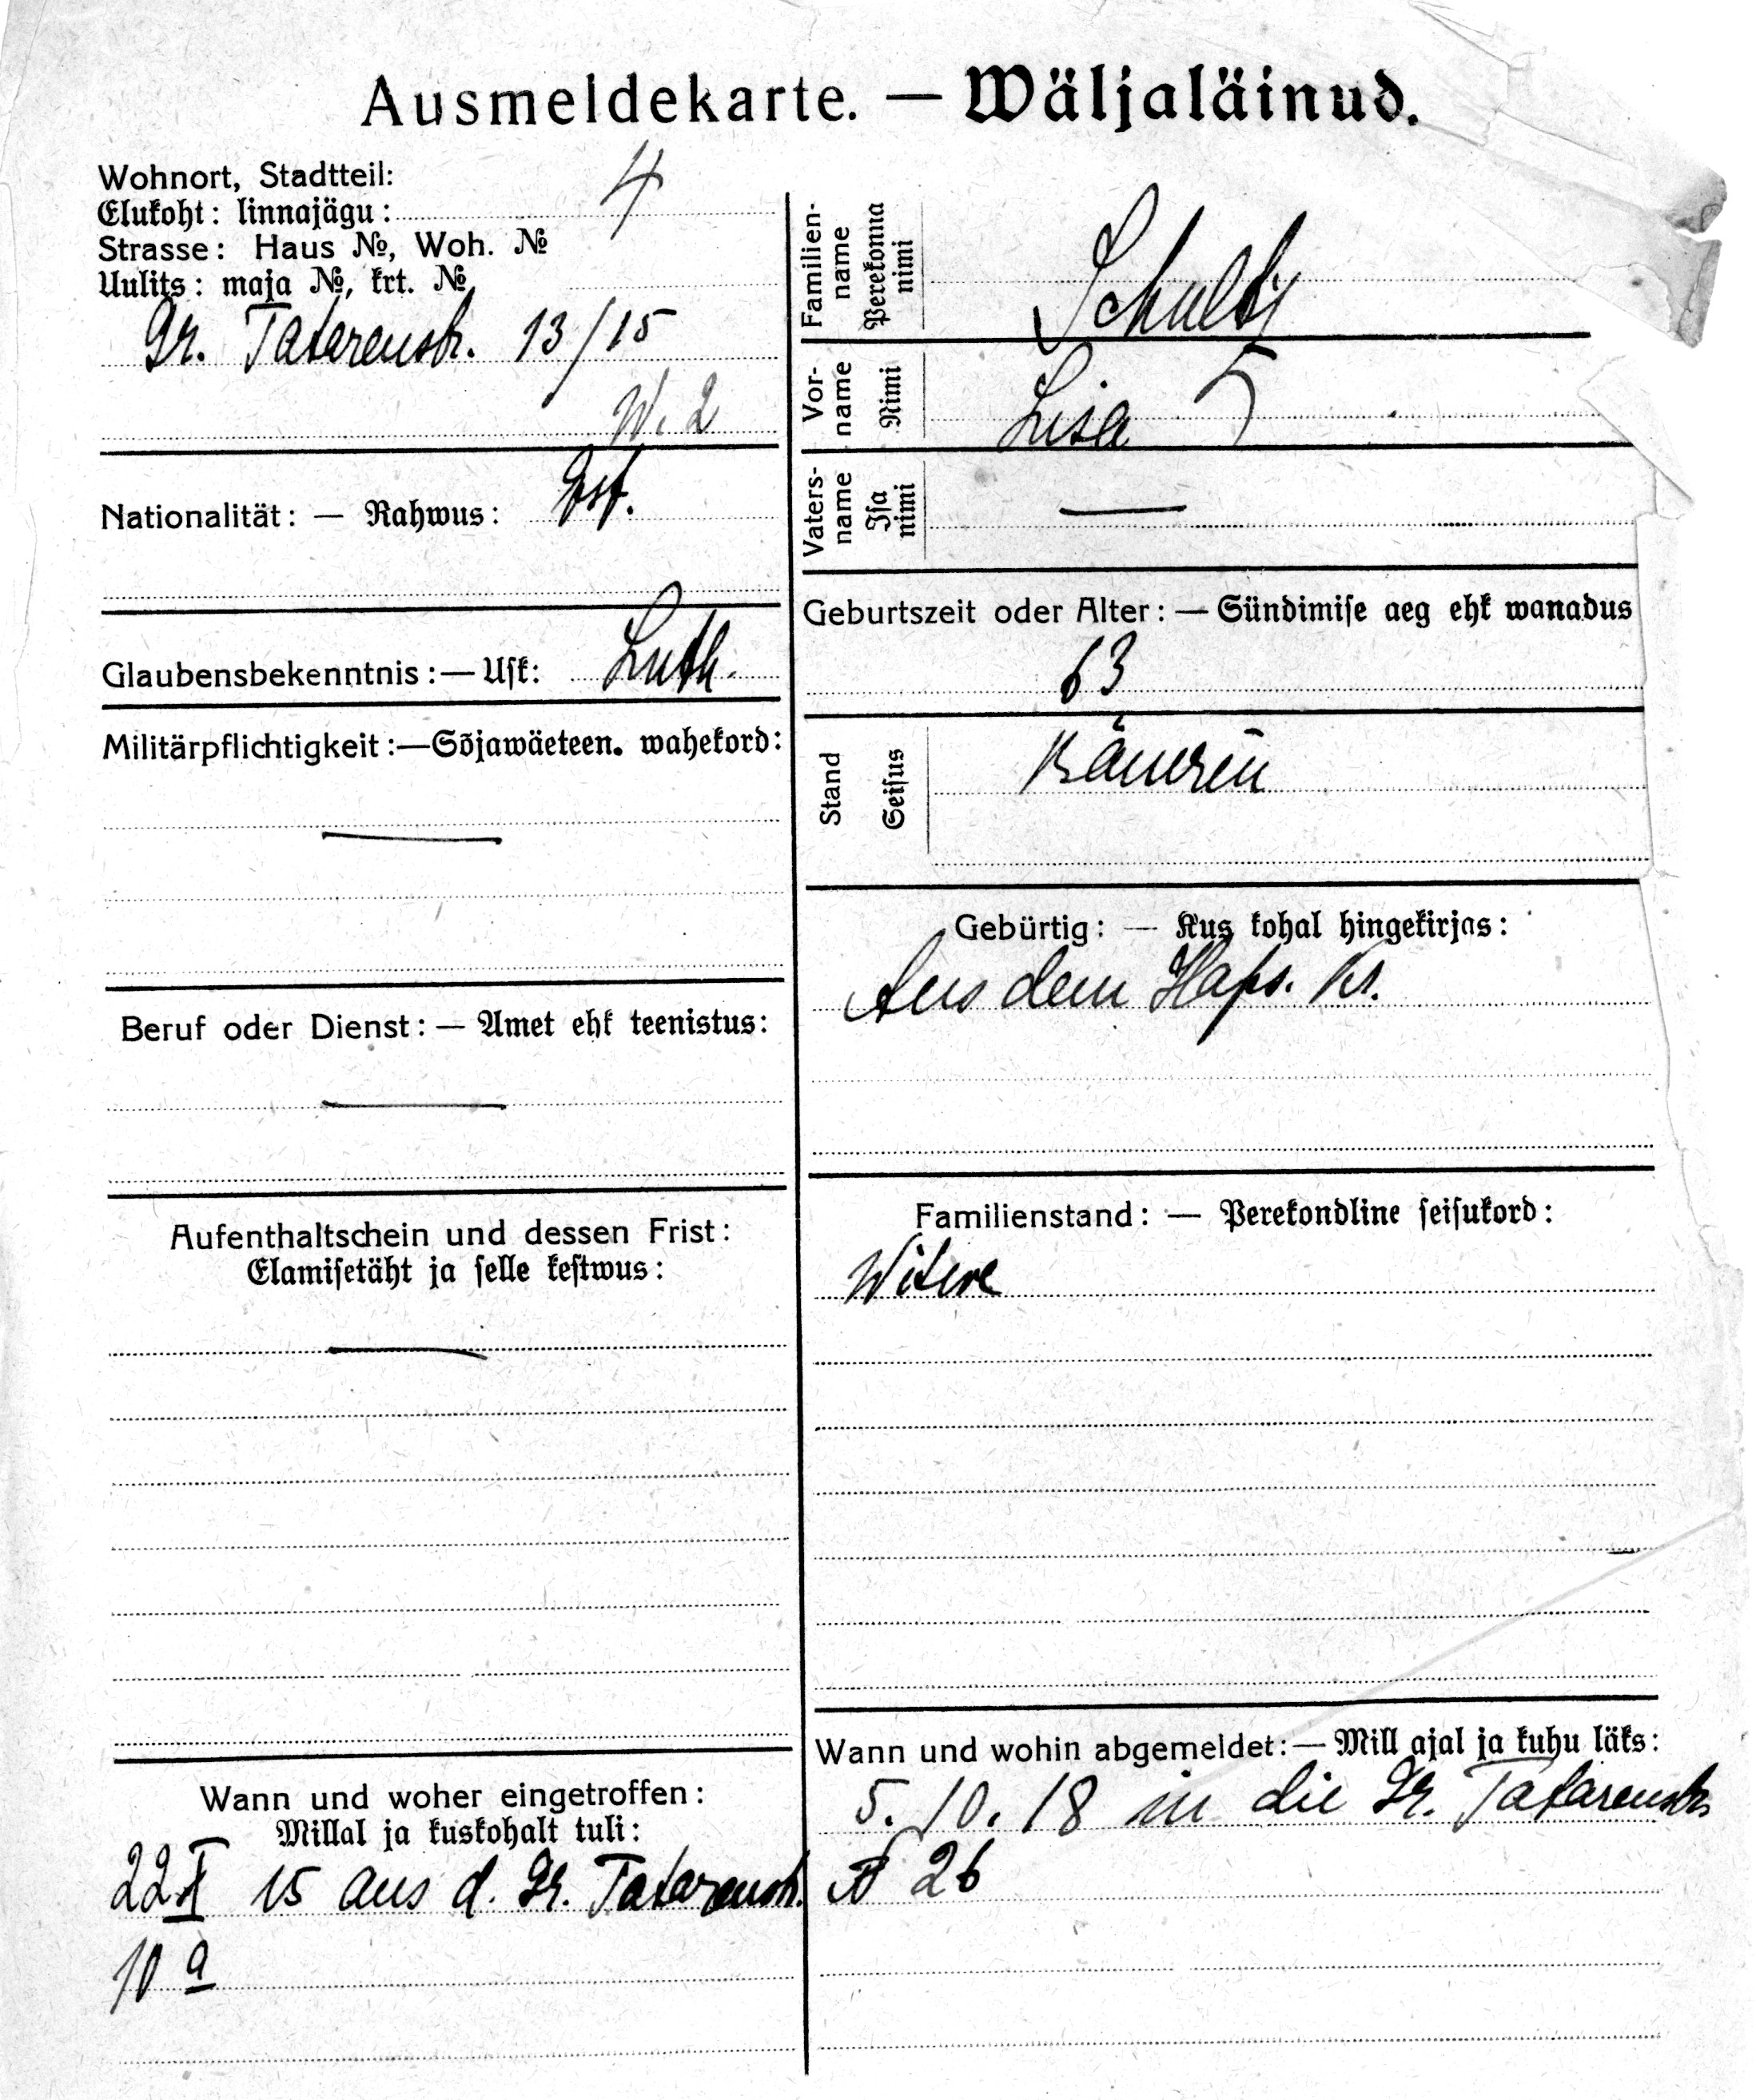 Ausmeldekarte. — Wäljaläinud.
Wohnort, Stadtteil:
Elukoht: linnajägu: 4
Strasse: Haus №, Woh. №
Uulits: maja №, krt. №
Gr. Tatarenstr. 13/15
W. 2
Nationalität: — Rahwus: Est.
Glaubensbekenntnis: — Usk: Luth.
Militärpflichtigkeit: — Sõjawäeteen. wahekord:
—
Beruf oder Dienst: — Amet ehk teenistus:
—
Aufenthaltschein und dessen Frist:
Elamisetäht ja selle kestwus:
—
Wann und woher eingetroffen:
Millal ja kuskohalt tuli:
22 X 15 aus d. Gr. Tatarenstr.
10 a
Familien-
name
Perekonna
nimi
Schultz
Vor-
name
Nimi
Lisa 5
Vaters-
name
Isa
nimi
—
Geburtszeit oder Alter: — Sündimise aeg ehk wanadus
63
Stand
Seisus
Bäuerin
Gebürtig: — Kus kohal hingekirjas:
Aus dem Haps. Kr.
Familienstand: — Perekondline seisukord:
Witwe
Wann und wohin abgemeldet: — Mill ajal ja kuhu läks:
5. 10. 18 in die Gr. Tatarenstr.
№ 26